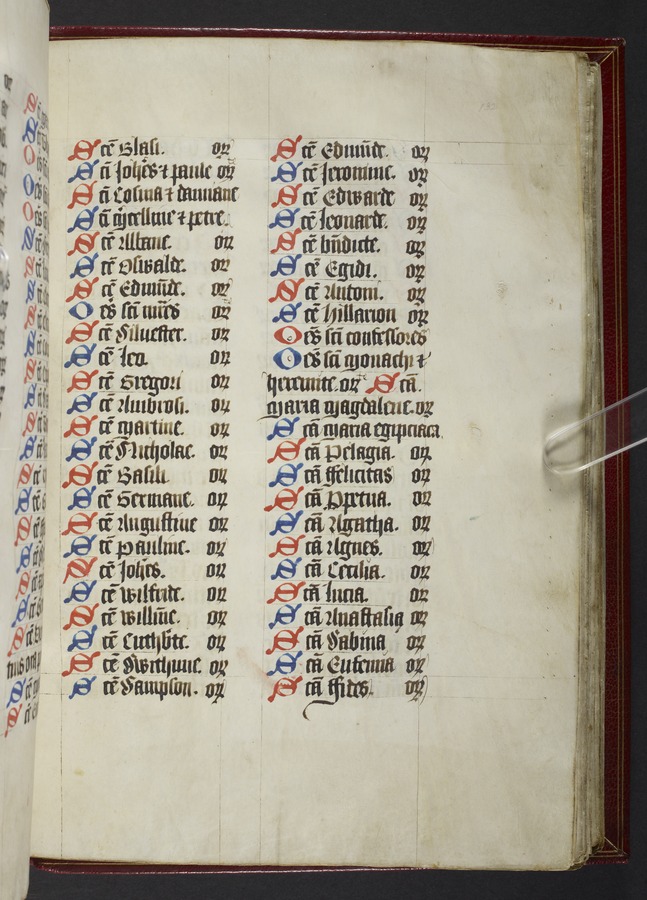 Scē Blasi. or̄
Scī Joh̄es ⁊ paule or̄
Scī Cosma ⁊ damiane
Scī Marcelline ⁊ petre.
Scē Albane. or̄
Scē Oswalde. or̄
Scē Edmūde. or̄
Oēs scī mr̄es or̄
Scē Siluester. or̄
Scē Leo. or̄
Scē Gregori or̄
Scē Ambrosi. or̄
Scē Martine. or̄
Scē Nicholae. or̄
Scē Basili or̄
Scē Germane. or̄
Scē Augustine or̄
Scē Pauline. or̄
Scē Joh̄es. or̄
Scē Wilfride. or̄
Scē Willm̄e. or̄
Scē Cuthb̄te. or̄
Scē Swithune. or̄
Scē Sampson. or̄
Scē Edmūde. or̄
Scē Jeronime. or̄
Scē Edwarde or̄
Scē Leonarde. or̄
Scē bn̄dicte. or̄
Scē Egidi. or̄
Scē Antoni. or̄
Scē Hillarion or̄
Oēs scī confessores
Oēs scī monachi ⁊
heremite. or̄ Scā.
Maria magdalene. or̄
Scā Maria egipciaca
Scā Pelagia. or̄
Scā ffelicitas or̄
Scā Ppetua. or̄
Scā Agatha. or̄
Scā Agnes. or̄
Scā Cecilia. or̄
Scā Lucia. or̄
Scā Anastasia or̄
Scā Sabina or̄
Scā Eufemia or̄
Scā ffides. or̄